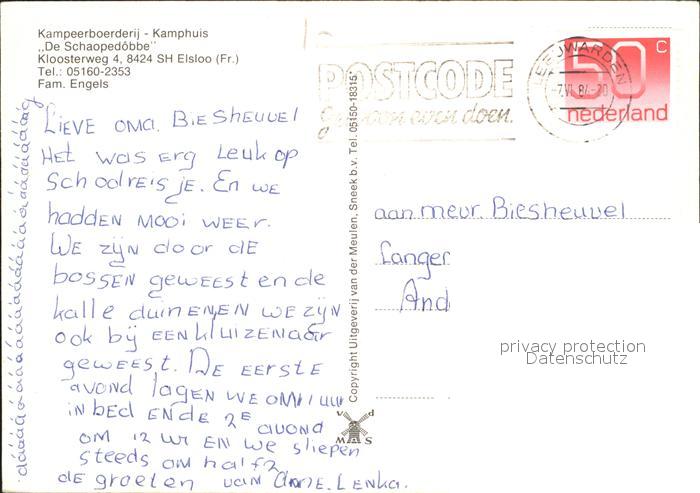 Kampeerboerderij - Kamphuis
„De Schaopedôbbe"
Kloosterweg 4, 8424 SH Elsloo (Fr.)
Tel.: 05160-2353
Fam. Engels
LIEVE oma. BIESHEUVEL
HET was ERG LEUK op
SCHOOLREISJE. EN WE
hadden MOOI WEER.
WE zijn door de
bossen geweest en de
kalle duinenen we zijn
ook bij een kluizenaar
geweest. De eerste
avond lagen we om 1 uur
in bed en de 2e avond
om 12 ur en we sliepen
steeds om half 2
de groeten van Anne. Lenka.
dáááááááááááááááááááááááág
Copyright Uitgeverij van der Meulen, Sneek b.v. Tel. 05150-18315*
v d
M S
POSTCODE
gewoon even doen.
LEEUWARDEN
-7.VI.8 -20
50 c
nederland
aan mevr. Biesheuvel
Langer
And
privacy protection
Datenschutz